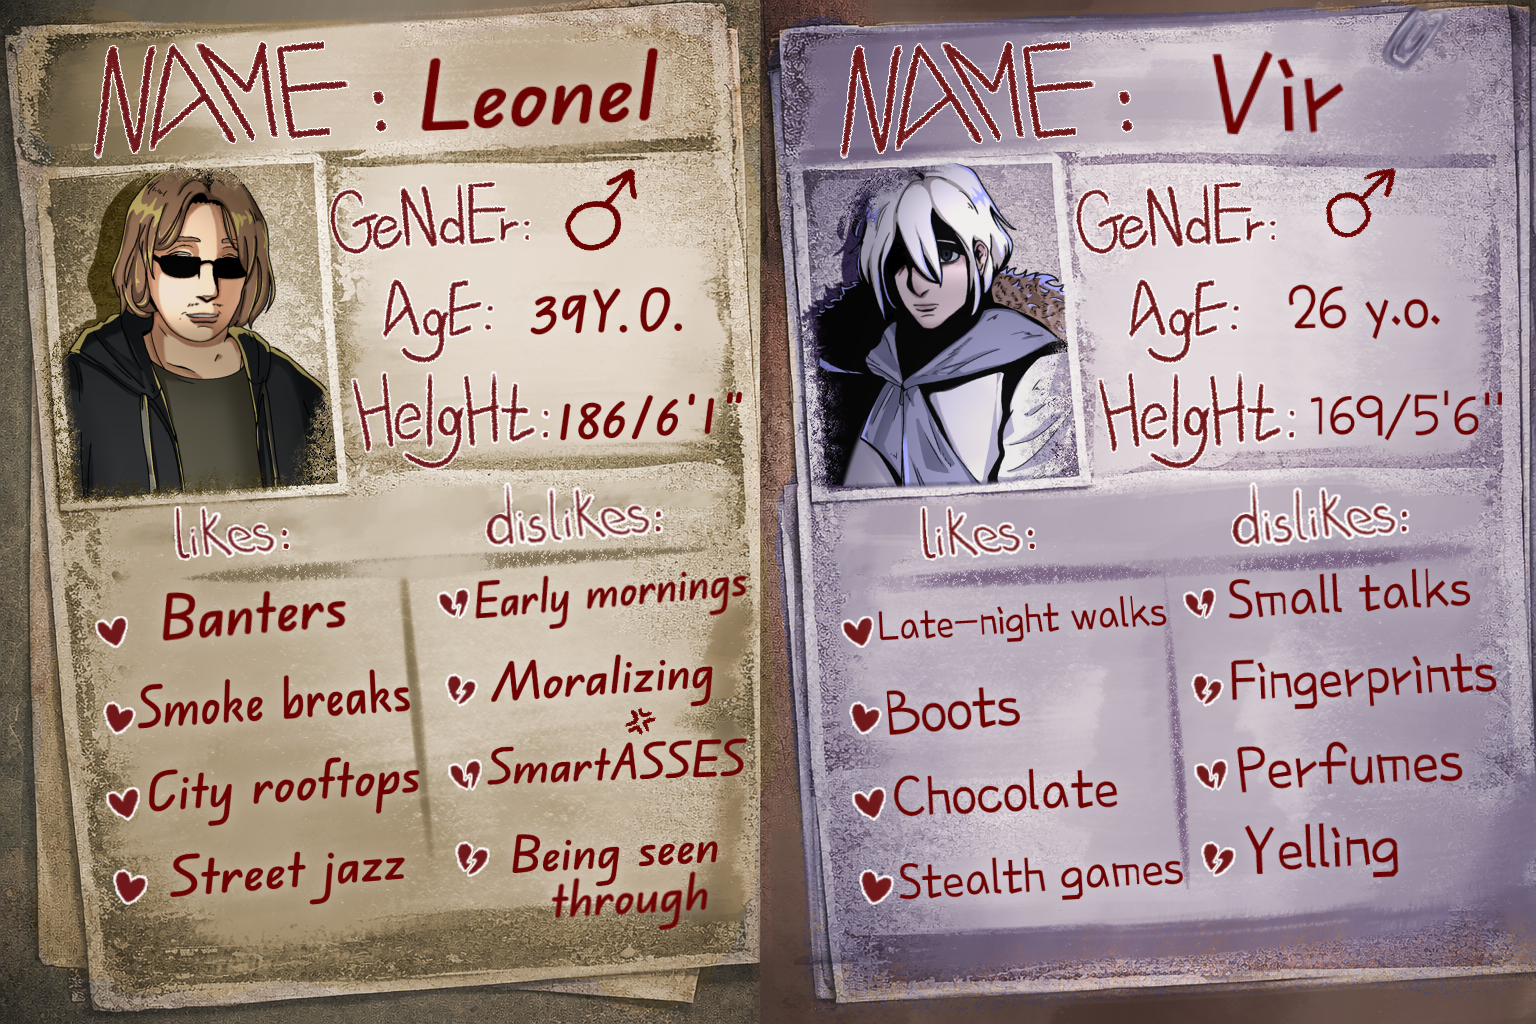 NAME : Leonel
GeNdEr: ♂
AgE: 39Y.O.
HeIgHt: 186/6'1"
liKes:
Banters
Smoke breaks
City rooftops
Street jazz
disliKes:
Early mornings
Moralizing
SmartASSES
Being seen
through
NAME : Vir
GeNdEr: ♂
AgE: 26 y.o.
HeIgHt: 169/5'6"
liKes:
Late-night walks
Boots
Chocolate
Stealth games
disliKes:
Small talks
Fingerprints
Perfumes
Yelling